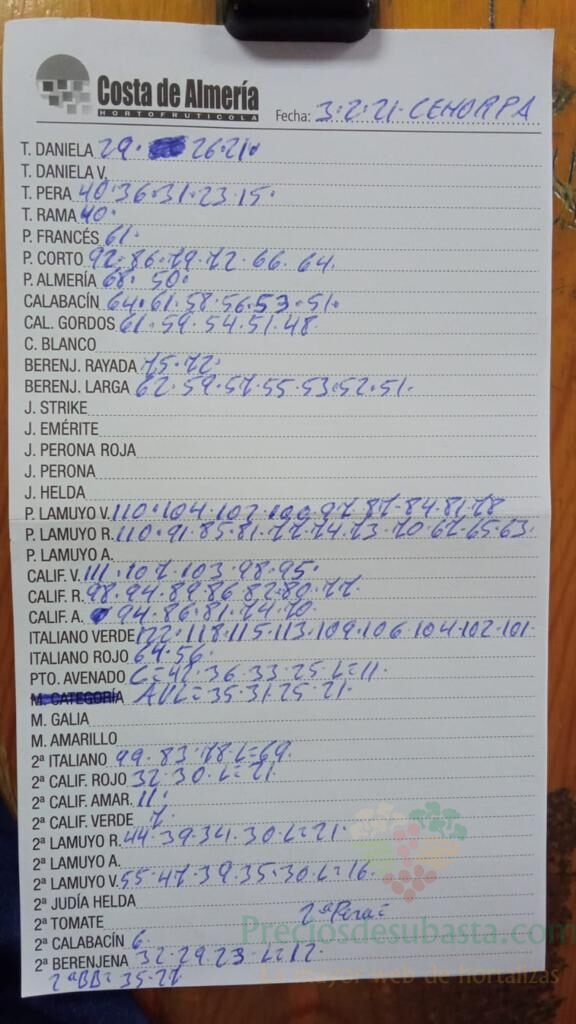 Costa de Almería
HORTOFRUTICOLA
Fecha: 3-2-21- CEHORPA
T. DANIELA 29. 26.21.
T. DANIELA V.
T. PERA 40.36.31.23.15.
T. RAMA 40.
P. FRANCÉS 61.
P. CORTO 92.86.79.72.66.64.
P. ALMERÍA 68. 50.
CALABACÍN 64.61.58.56.53.51.
CAL. GORDOS 61.59.54.51.48.
C. BLANCO
BERENJ. RAYADA 75.72.
BERENJ. LARGA 62.59.57.55.53.52.51.
J. STRIKE
J. EMÉRITE
J. PERONA ROJA
J. PERONA
J. HELDA
P. LAMUYO V. 110.104.102.100.97.87.84.81.78
P. LAMUYO R. 110.91.85.81.77.74.73.70.67.65.63.
P. LAMUYO A.
CALIF. V. 111.107.103.98.95.
CALIF. R. 98.94.89.86.82.80.77.
CALIF. A. 94.86.81.74.70.
ITALIANO VERDE 122.118.115.113.109.106.104.102.101.
ITALIANO ROJO 64.56.
PTO. AVENADO C=42.36.33.25.L=11.
M. CATEGORÍA AVL=35.31.25.21.
M. GALIA
M. AMARILLO
2ª ITALIANO 99.83.78 L=69.
2ª CALIF. ROJO 32.30.L=21.
2ª CALIF. AMAR. 11.
2ª CALIF. VERDE 7.
2ª LAMUYO R. 44.39.34.30.L=21.
2ª LAMUYO A.
2ª LAMUYO V. 55.47.39.35.30.L=16.
2ª JUDÍA HELDA
2ª TOMATE 2ª Pera=
Preciosdesubasta.com
2ª CALABACÍN 6.
La mayor web de hortalizas
2ª BERENJENA 32.29.23.L=12.
2ªBB=35-27